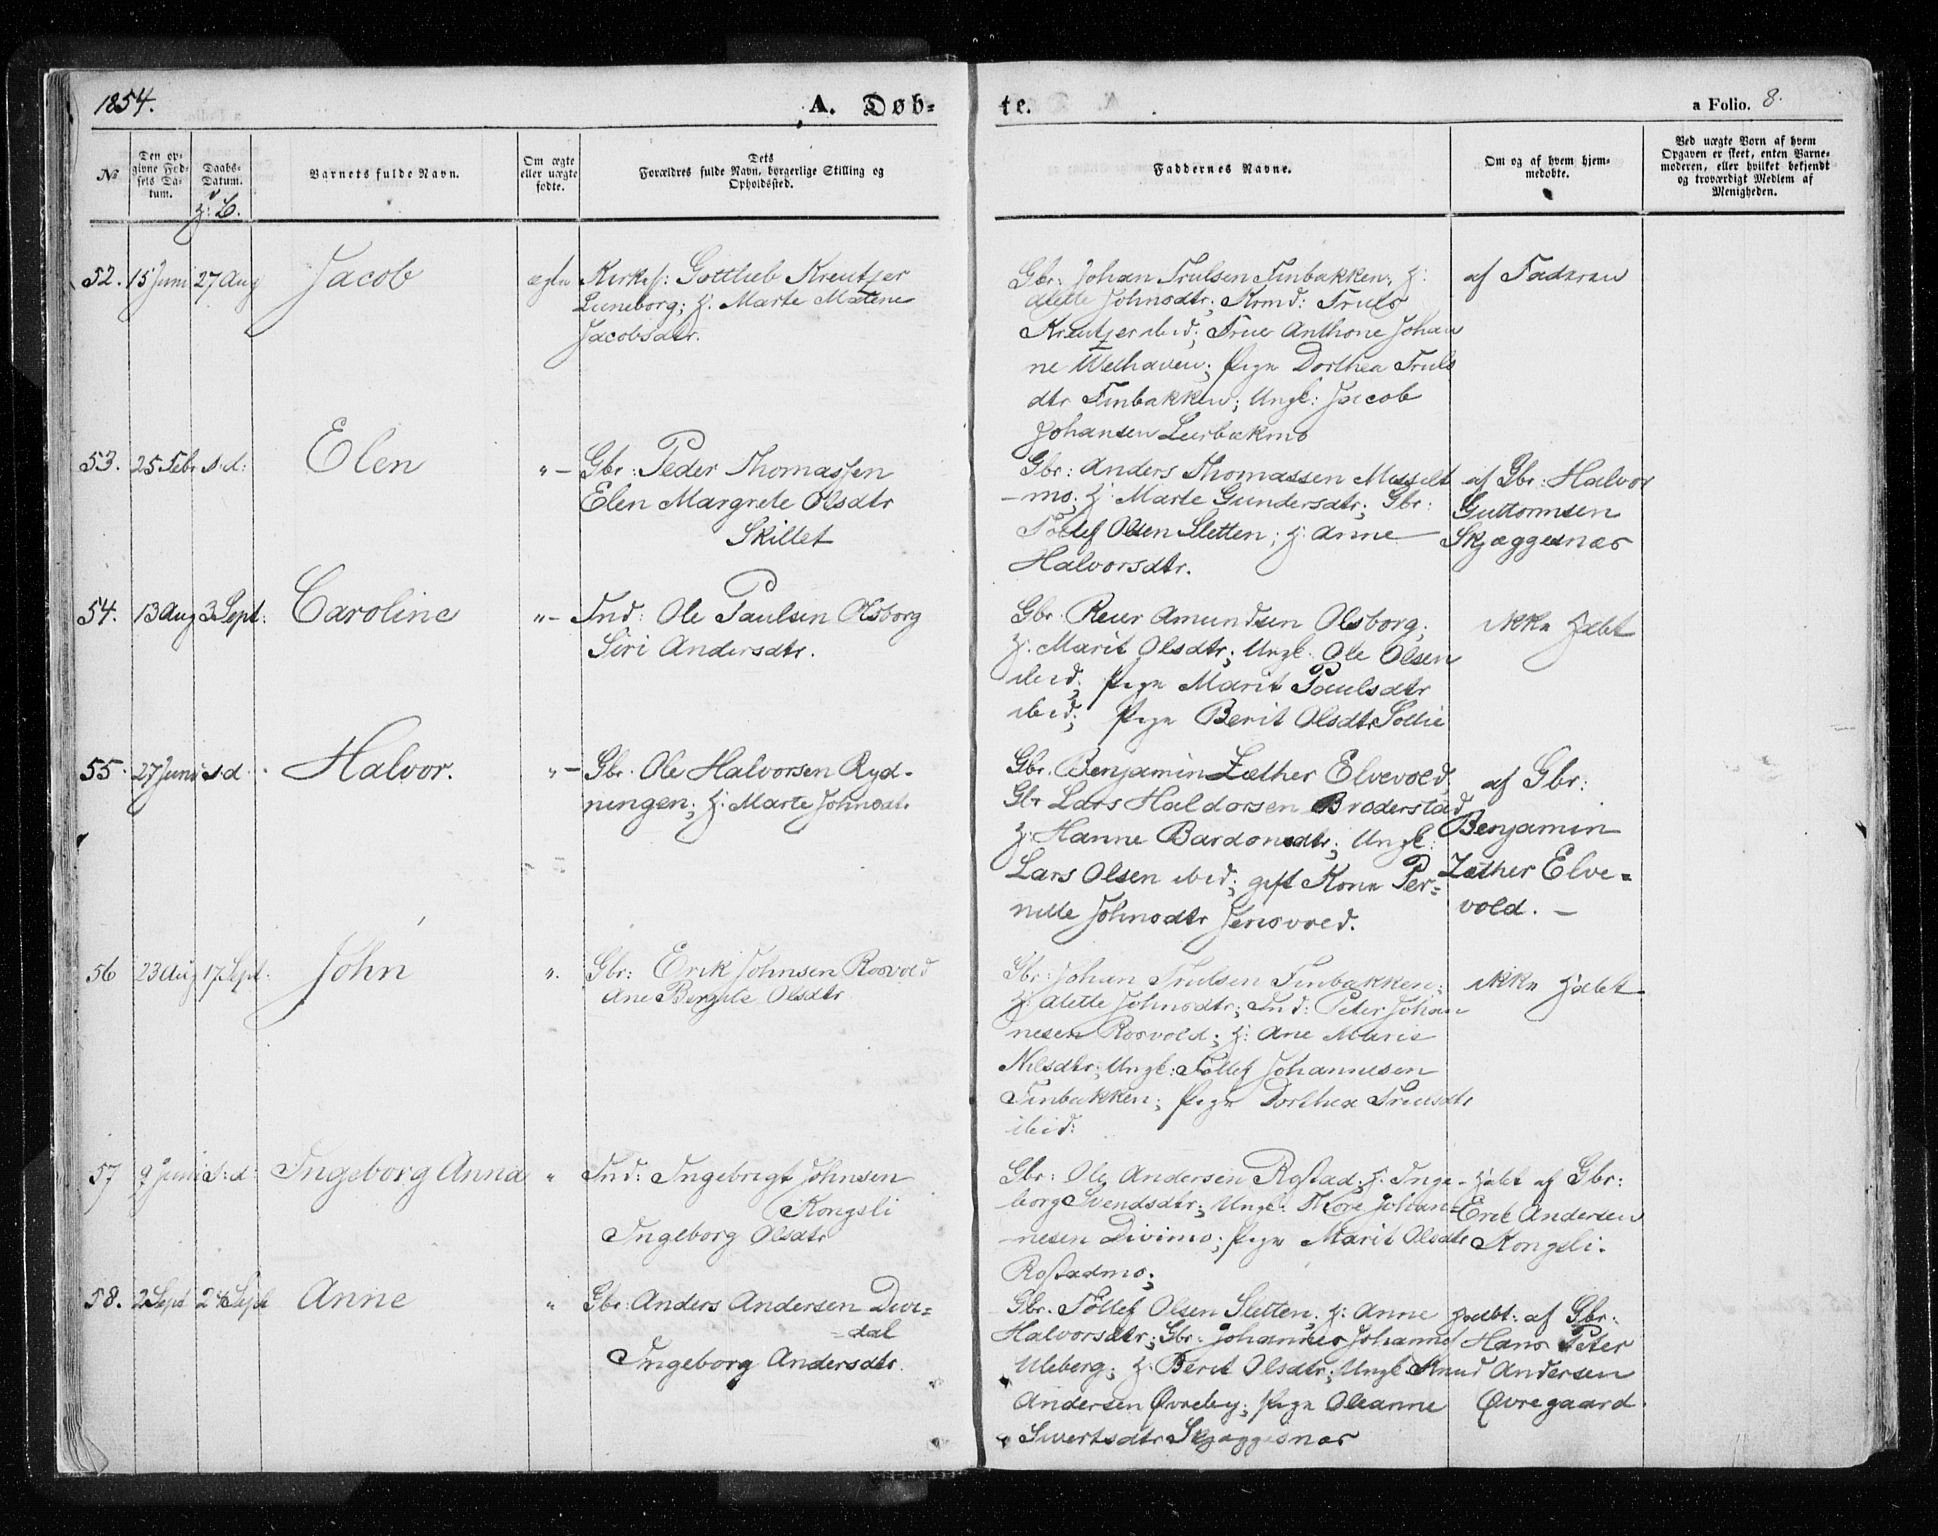 1854.
A. Døb-
te.
a Folio. 8.
No
Den op-
givne Fød-
sels Da-
tum.
Daabs-
Datum.
Barnets fulde Navn.
Om ægte
eller uægte
fødte.
Dets
Forældres fulde Navn, borgerlige Stilling og
Opholdssted.
Faddernes Navne.
Om og af hvem hjem-
medøbte.
Ved uægte Børn af hvem
Opgaven er skeet, enten Barne-
moderen, eller hvilket bekjendt
og troværdigt Medlem af
Menigheden.
52. 15 Juni 27 Aug Jacob ægte Kirkes: Gottlieb Kreutzer
Luneborg; H: Marte Matene
Jacobsdtr.
Gbr: Johan Trulsen Finbakken; H:
Alette Johnsdtr; Komd: Truls
Kreutzer ibid; Frue Anthone Johan
ne Welhaven; Pige Dorthea Truls
dtr Finbakken; Ungk: Jacob
Johansen Leirbakmo
af Faderen
53. 25 Febr s:d: Elen "— Gbr: Peder Thomassen
Elen Margrete Olsdtr
Skillet
Gbr: Anders Thomassen Messelt
-mo; H: Marte Gundersdtr; Gbr:
Tollef Olsen Sletten; H: Anne
Halvorsdtr.
af Gbr: Halvor
Guttormsen
Skjæggesnæs
54. 13 Aug 3 Sept: Caroline "— Ind: Ole Paulsen Olsborg
Siri Andersdtr.
Gbr. Reier Amundsen Olsborg;
H. Marit Olsdtr; Ungk. Ole Olsen
ibid; Pige Marit Paulsdtr
ibid; Pige Berit Olsdtr Sollie
ikke Hdøbt
55. 27 Juni s.d. Halvor. "— Gbr. Ole Halvorsen Ryd-
ningen; H: Marte Johnsdt.
Gbr. Benjamin Zæther Elvevold,
Gbr Lars Haldorsen Broderstad
H: Hanne Bardonsdtr; Ungk:
Lars Olsen ibid; gift Kone Per-
nille Johnsdtr Jensvold.
af Gbr:
Benjamin
Zæther Elve-
vold. —
56 23 Aug 17 Sept. John ". Gbr: Erik Johnsen Rosvold
Ane Bergite Olsdtr
Gbr: Johan Trulsen Finbakken;
H. Alette Johnsdtr; Ind: Peter Johan
nesen Rosvold; H: Ane Marie
Nilsdtr; Ungk: Tollef Johannesen
Finbakken; Pige Dorthea Trulsdtr
ibid:
ikke Hdøbt
57 9 Juni s:d: Ingeborg Anna " Ind: Ingebrigt Johnsen
Kongsli
Ingeborg Olsdtr
Gbr: Ole Andersen Rostad; H: Inge-
borg Svendsdtr; Ungk: Thore Johan-
nesen Divimo; Pige Marit Olsdtr
Rostadmo;
Hdøbt af Gbr:
Erik Andersen
Kongsli.
58. 2 Sept 24 Sept Anne " Gbr: Anders Andersen Divi-
dal
Ingeborg Andersdtr.
Gbr. Tollef Olsen Sletten; H: Anne
Halvorsdtr; Gbr. Johannes Johannes
Uleberg; H: Berit Olsdtr; Ungk Knud
Andersen Øvreby; Pige Oleanne
Sivertsdtr Skjæggesnæs
Hdøbt: af Gbr:
Hans Peter
Andersen
Øvregaard.